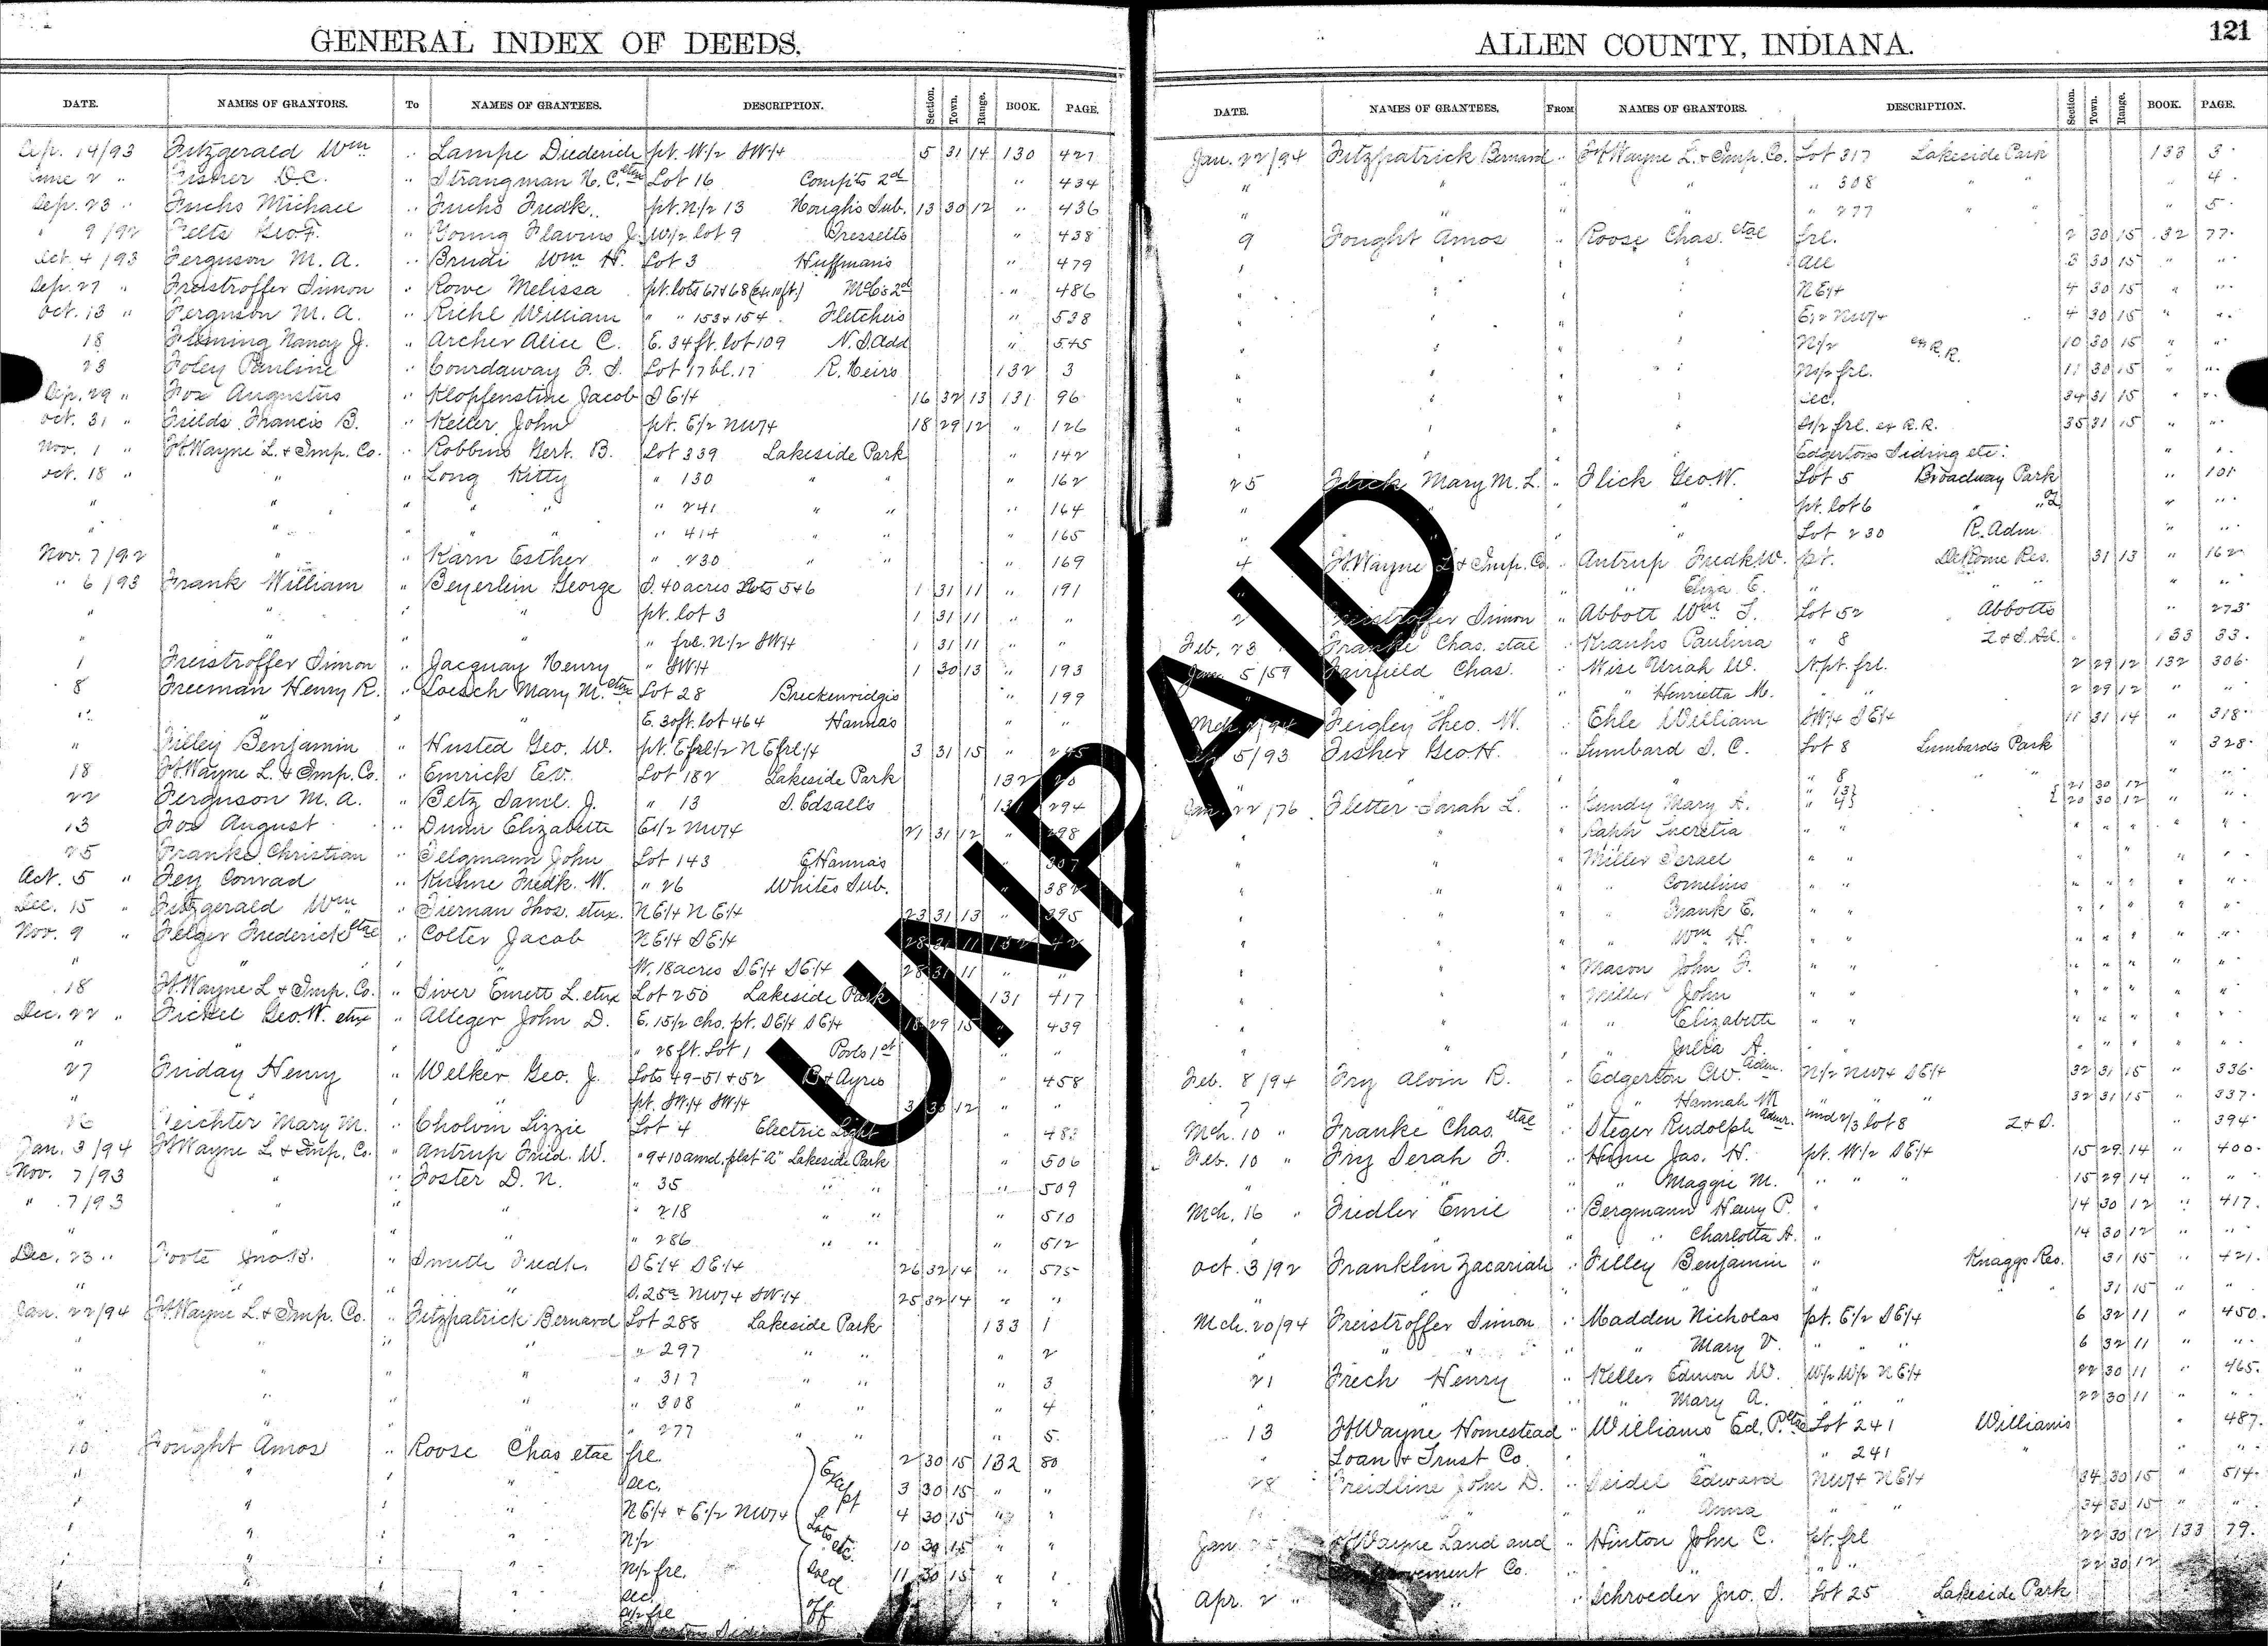 GENERAL INDEX OF DEEDS.
DATE. NAMES OF GRANTORS. To NAMES OF GRANTEES. DESCRIPTION. Section. Town. Range. BOOK. PAGE.
Sep. 14/93 Fitzgerald Wm " Lampe Diederich pt. W/2 SW/4 5 31 14 130 427
June 2 " Fisher D.C. " Strangman N. C. etal Lot 16 Compts 2d " 434
Sep. 23 " Fuchs Michael " Fuchs Fredk. pt. N/2 13 Hough's Sub. 13 30 12 " 436
" 9/92 Felts Geo. F. " Young Flavius J. W/2 lot 9 " 438
Oct. 4/93 Ferguson M. A. " Brudi Wm H. Lot 3 Huffman's " 479
Sep. 27 " Freistroffer Simon " Rowe Melissa pt. lots 67 & 68 (Ex. 10 ft.) McC's 2d " 486
Oct. 13 " Ferguson M. A. " Riehl William " " 153 & 154 Fletcher's " 538
18 Fleming Nancy J. " Archer Alice C. E. 34 ft. lot 109 N. S. Add " 545
23 Foley Pauline " Courdaway F. S. Lot 17 bl. 17 R. Heirs 132 3
Sep. 29 " Fox Augustus " Klopfenstine Jacob SE/4 16 32 13 131 96
Oct. 31 " Fields Francis B. " Keller John pt. E/2 NW/4 18 29 12 " 126
Nov. 1 " Ft. Wayne L. & Imp. Co. " Robbins Gert. B. Lot 339 Lakeside Park " 142
Oct. 18 " " " Long Kitty " 130 " " " 162
" " " " " 241 " " " 164
" " " " " 414 " 165
Nov. 7/92 " " Karn Esther " 230 " " " 169
" 6/93 Frank William " Beyerlein George S. 40 acres Lots 5 & 6 1 31 11 " 191
" " " " pt. lot 3 1 31 11 " "
" " " " " frl. N/2 SW/4 1 31 11 " "
1 Freistroffer Simon " Jacquay Henry " SW/4 1 30 13 " 193
8 Freeman Henry R. " Loesch Mary M. etal Lot 28 Breckenridge's " 199
" " " " E. 30 ft. lot 464 Hanna's " "
" Filley Benjamin " Husted Geo. W. pt. E frl/2 NE frl/4 3 31 15 " 245
18 Ft. Wayne L. & Imp. Co. " Emrick E.V. Lot 182 Lakeside Park 132 20
22 Ferguson M. A. " Betz Daml. J. " 13 S. Edsall's 131 294
13 Fox August " Dunn Elizabeth E/2 NW/4 21 31 12 " 298
25 Franke Christian " Selgmann John Lot 143 E Hanna's " 307
Oct. 5 " Fey Conrad " Kuhne Fredk. W. " 26 White's Sub. " 382
Dec. 15 " Fitzgerald Wm " Tiernan Thos. etux. NE/4 NE/4 23 31 13 " 395
Nov. 9 " Felger Frederick etal " Colter Jacob NE/4 SE/4 28 31 11 132 42
" " " " W. 18 acres SE/4 SE/4 28 31 11 " "
18 Ft. Wayne L & Imp. Co. " Siver Emett L. etux Lot 250 Lakeside Park 131 417
Dec. 22 " Fickel Geo. W. etux " Alleger John D. E. 15/2 chs. pt. SE/4 SE/4 18 29 15 " 439
" " " 28 ft. Lot 1 " "
27 Friday Henry " Welker Geo. J. Lots 49-51 & 52 B & Ayres " 458
" " " pt. SW/4 SW/4 3 30 12 " "
26 Feichter Mary M. " Cholvin Lizzie Lot 4 Electric Light " 483
Jan. 3/94 Ft. Wayne L. & Imp. Co. " Antrup Fried. W. " 9 & 10 amd. plat "A" Lakeside Park " 506
Nov. 7/93 " " Foster D. N. " 35 " " " 509
" 7/93 " " " " 218 " " " 510
" " " " " 286 " " " 512
Dec. 23 " Foote Jno. B. " Smith Fredk. SE/4 SE/4 26 32 14 " 575
" " " " S. 25a NW/4 SW/4 25 32 14 " "
Jan. 22/94 Ft. Wayne L. & Imp. Co. " Fitzpatrick Bernard Lot 288 Lakeside Park 133 1
" " " " " 297 " " 2
" " " " " 317 " " " 3
" " " " " 308 " " " 4
" " " " " 277 " " " 5
10 Fought Amos " Roose Chas etal frl. 2 30 15 132 80
" " " " Sec. 3 30 15 " "
" " " " NE/4 & E/2 NW/4 4 30 15 " "
" " " " N/2 10 30 15 " "
" " " " N/2 frl. 11 30 15 " "
Except Lots etc. sold off
Sec.
frl
ALLEN COUNTY, INDIANA.
121
DATE. NAMES OF GRANTEES. FROM NAMES OF GRANTORS. DESCRIPTION. Section. Town. Range. BOOK. PAGE.
Jan. 22/94 Fitzpatrick Bernard " Ft Wayne L. & Imp. Co. Lot 317 Lakeside Park 133 3
" " " " " 308 " " " 4
" " " " " 277 " " " 5
9 Fought Amos " Roose Chas. etal frl. 2 30 15 132 77
" " " " All 3 30 15 " "
" " " " NE/4 4 30 15 " "
" " " " E/2 NW/4 4 30 15 " "
" " " " N/2 ex R.R. 10 30 15 " "
" " " " N/2 frl. 11 30 15 " "
" " " " Sec. 34 31 15 " "
" " " " S/2 frl. ex R.R. 35 31 15 " "
" " " " Edgertons Siding etc. " "
25 Flick Mary M. L. " Flick Geo. W. Lot 5 Broadway Park " 101
" " " pt. lot 6 " " 2 " "
" " " Lot 230 R. Adm " "
4 Ft. Wayne L & Imp. Co. " Antrup Fredk W. pt. LaRome Res. 31 13 " 162
" " " Eliza E. " " " " "
2 Freistroffer Simon " Abbott Wm T. Lot 52 Abbotts " 273
Feb. 23 " Franke Chas. etal " Kranhs Paulina " 8 133 33
Jan. 5/59 Fairfield Chas. " Wise Uriah W. N. pt. frl. 2 29 12 132 306
" " " Henrietta M. " " 2 29 12 " "
Mch. /94 Feigley Theo. W. " Ehle William SW/4 SE/4 11 31 14 " 318
5/93 Fisher Geo. H. " Lumbard S. C. Lot 8 Lumbard's Park " 328
" " " " " 8 " " " "
Jan. 22/76 Fletter Sarah L. " Kundy Mary A. " 13 " 4 21 30 12 20 30 12 " "
" " " Raph Lucretia " " " " " " "
" " " Miller Israel " " " " " " "
" " " " Cornelius " " " " " " "
" " " " Frank E. " " " " " " "
" " " " Wm H. " " " " " " "
" " " Mason John F. " " " " " " "
" " " Miller John " " " " " " "
" " " " Elizabeth " " " " " " "
" " " " Julia A. " " " " " " "
Feb. 8/94 Fry Alvin B. " Edgerton C.W. Adm. N/2 NW/4 SE/4 32 31 15 " 336
7 " " " Hannah M " " " 32 31 15 " 337
Mch. 10 " Franke Chas. etal " Steger Rudolph Admr. und 2/3 lot 8 Z & S. " 394
Feb. 10 " Fry Serah F. " Hume Jas. H. pt. W/2 SE/4 15 29 14 " 400
" " " " Maggie M. " " " 15 29 14 " "
Mch. 16 " Fiedler Emil " Bergmann Henry P. " 14 30 12 " 417
" " " " Charlotta A. " 14 30 12 " "
Oct. 3/92 Franklin Zacariah " Filley Benjamin " Knaggs Res. 31 15 " 421
" " 31 15 " "
Mch. 20/94 Freistroffer Simon " Madden Nicholas pt. E/2 SE/4 6 32 11 " 450
" " " " Mary V. " " " 6 32 11 " "
21 Frech Henry " Keller Edmon W. W/2 W/2 NE/4 22 30 11 " 465
" " " " Mary A. " " 22 30 11 " "
13 Ft Wayne Homestead " Williams Ed. P. etal Lot 241 Williams " 487
" Loan & Trust Co. " " " 241 " " "
28 Freidline John D. " Seidel Edward NW/4 NE/4 34 30 15 " 514
" " Anna " " 34 30 15 " "
Jan. 25 Ft Wayne Land and " Hinton John C. pt. frl 22 30 12 133 79
Improvement Co. " " " 22 30 12
Apr. 2 " " " Schroeder Jno. S. Lot 25 Lakeside Park
UNPAID